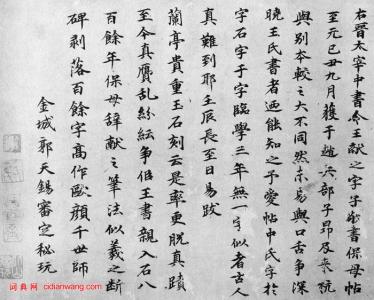 右晉太宰中書令王獻之字子敬書保母帖
至元己丑九月獲于趙兵部子昂及來杭
與別本較之大不同然未易與口舌爭深
曉王氏書者迺能知之予愛帖中民字於
字石字于字臨學三年無一字似者古人
真難到耶壬辰長至日易跋
蘭亭貴重玉石刻云是率更脫真蹟
至今真贗亂紛紜爭似王書親入石八
百餘年保母辭獻之筆法似羲之斷
碑剥落百餘字高作歐顏千世師
金城郭天錫審定秘玩
词典网 cidianwang.com